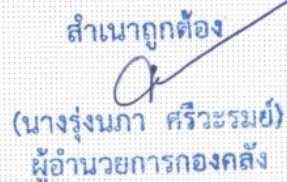 สำเนาถูกต้อง
(นางรุ่งนภา ศรีวะรมย์)
ผู้อำนวยการกองคลัง